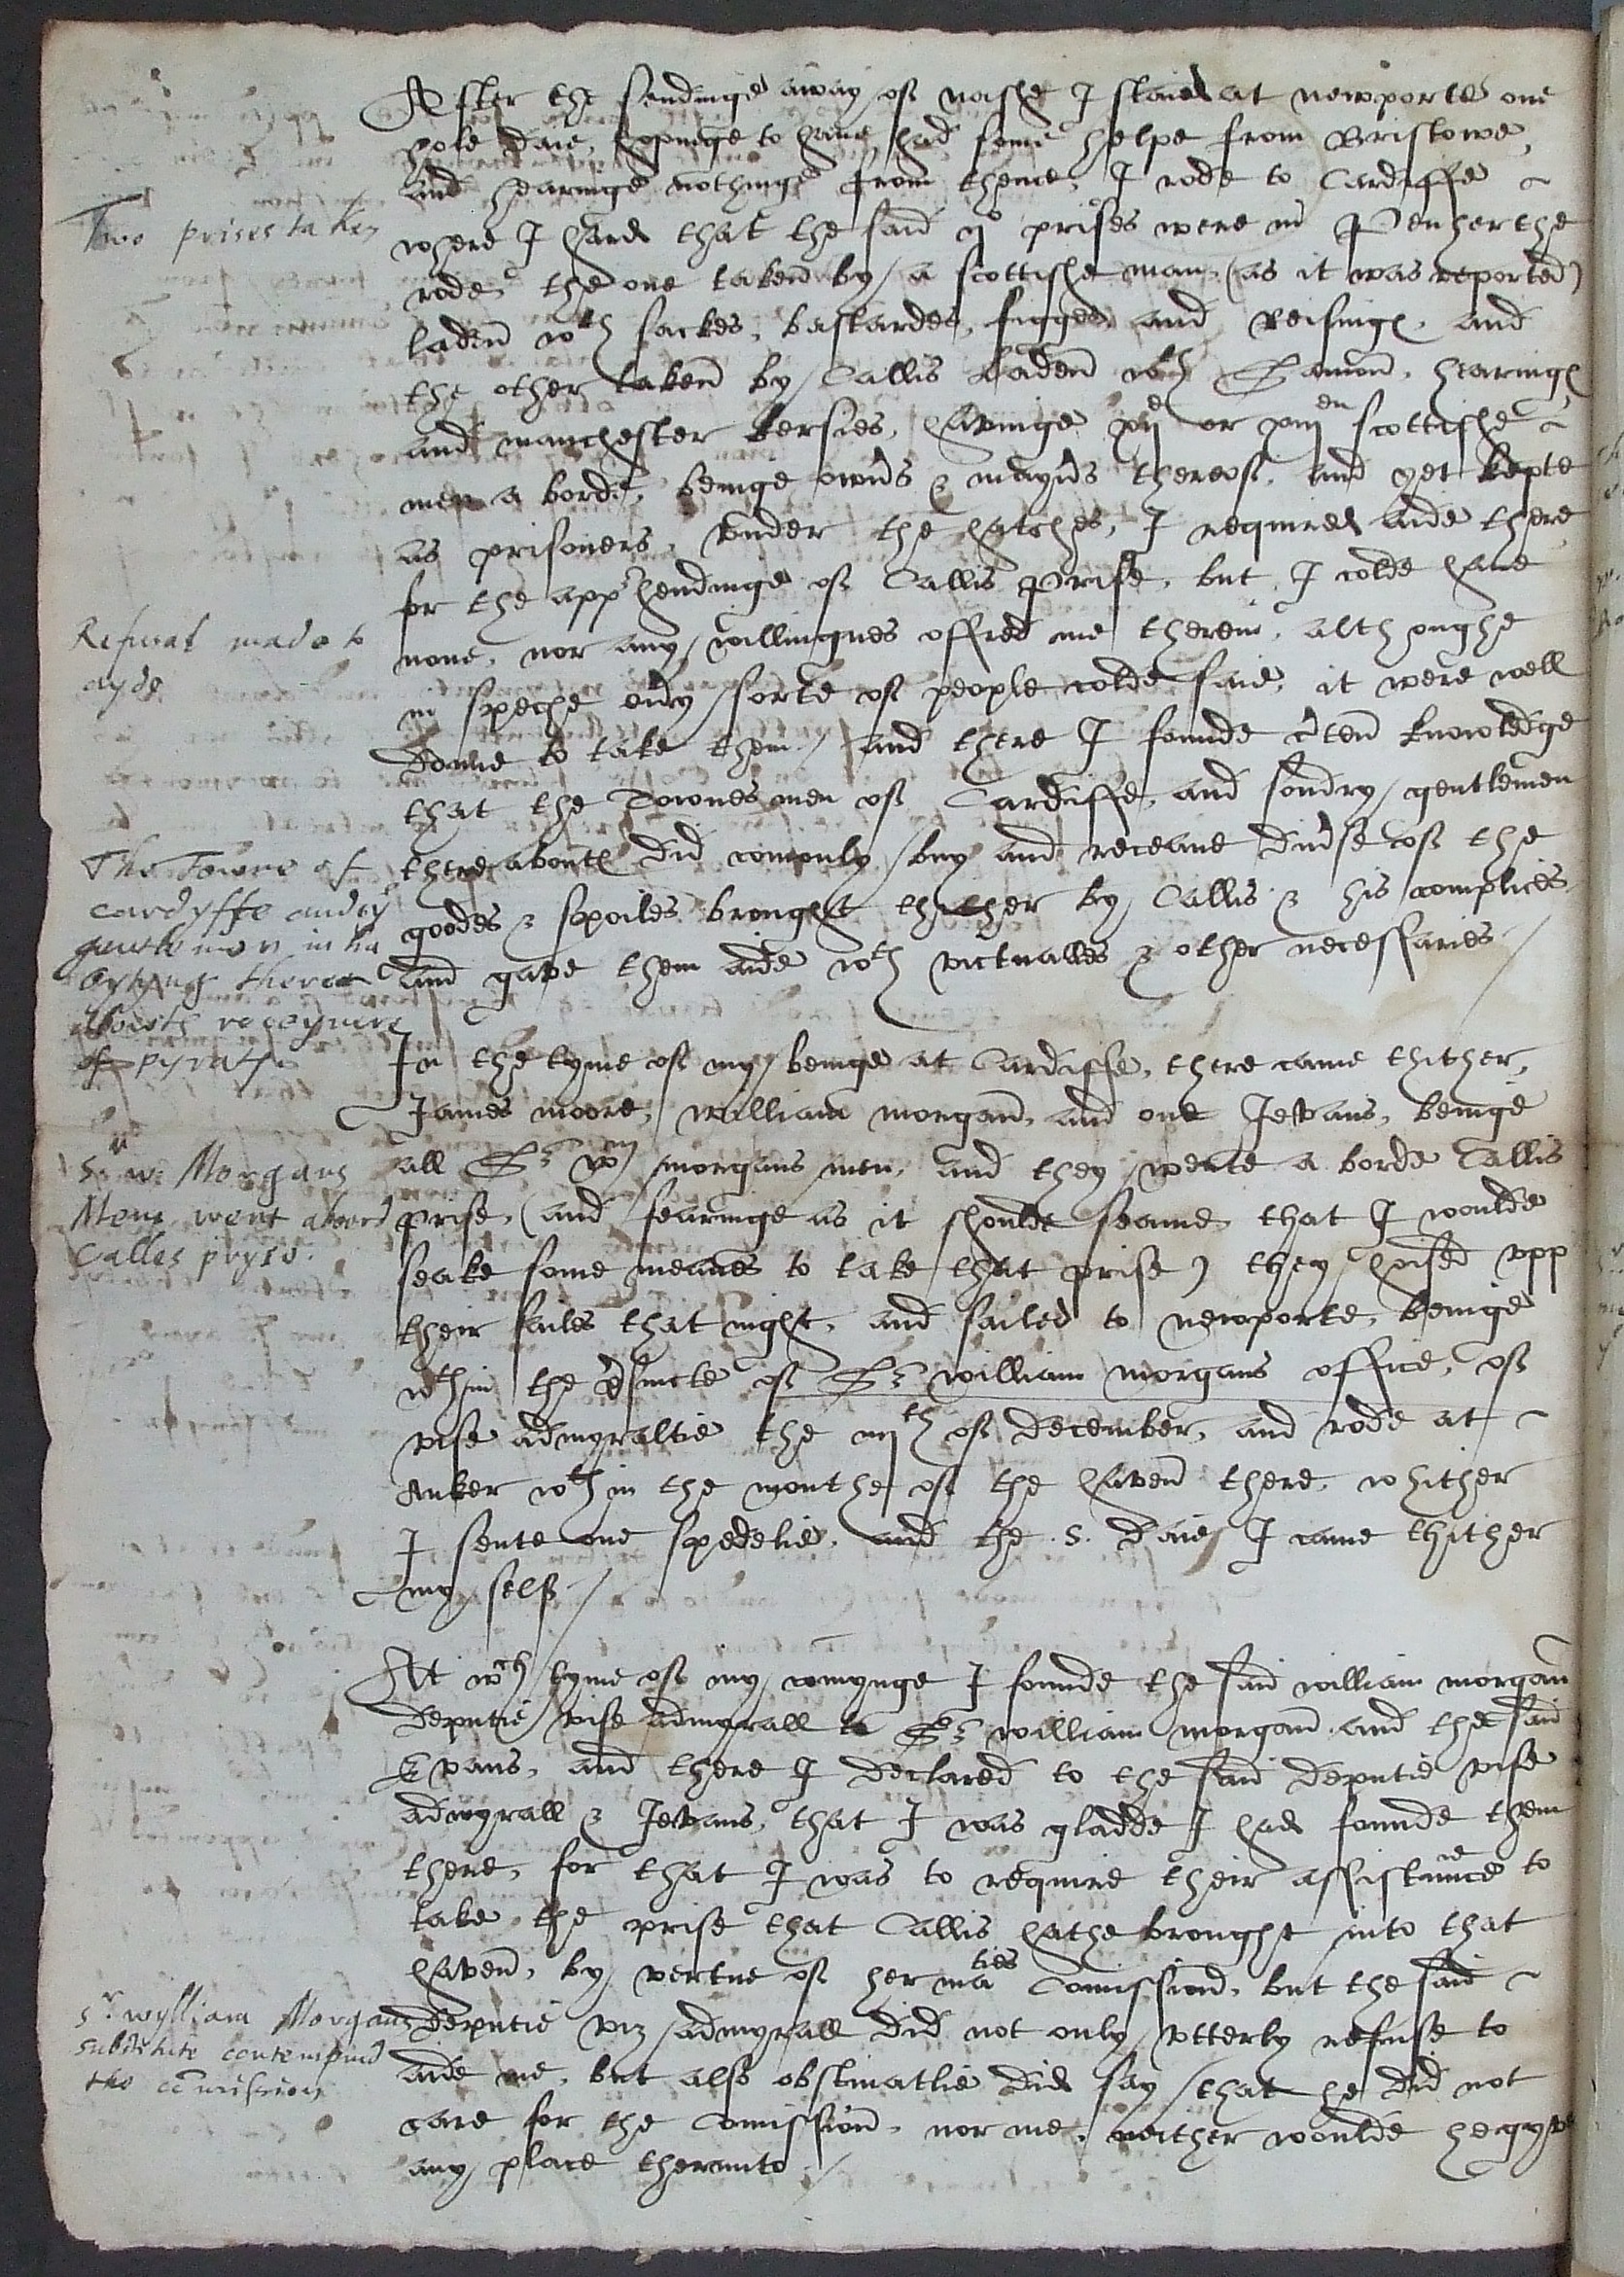 After the sendinge away of nashe I staied at newporte one
hole daie, hopinge to have had some helpe from Bristowe,
and hearinge nothinge from thence, I rode to Cardiffe
Two prises taken
where I hard that the said ij prises were in Penherthe
rode the one taken by a scottishe man (as it was reported)
laden wth sackes, bastardes, figges and Reisinges, and
the other taken by Callis laden wth Samon, hearinges
and manchester kersies, havinge or scottishe
men a borde, beinge owners & mayrs thereof, and yet kepte
as prisoners, under the hatches, I required aide there
for the apprehendinge of Callis Prise, but I colde have
Refusal made to
ayde
none, nor any willingnes offred me therein, althoughe
in speche every sorte of people colde saie, it were well
donne to take them / and there I founde certen knowledge
that the Townes men of Cardiffe, and sondry gentlemen
The Towne of
cardyffe and ye
gentlemen inha
bytyng there
aboute receyvers
of pyrates
there aboutes did comonly buy and receave diverse of the
goodes & spoiles brought thether by Callis & his complices
and gave them aide wth victualles & other necessaries /
In the tyme of my beinge at Cardiffe, there came thither,
James moore, william morgan, and one Jevans, beinge
Sr w. Morgans
Men went abord
Calles pryse.
all Sr Wm morgans men, and they wente a borde Callis
prise, (and fearinge as it shoulde seame, that I woulde
seake some meanes to take that prise) they hoised upp
their sailes that night, and sailed to newporte, beinge
wthin the presincte of Sr william morgans office, of
vise admyraltie the iiijth of December, and rode at
Anker wthin the mouthe of the haven there, whither
I sente one spedelie, and the .5. daie I came thither
my self /
At wch tyme of my comynge I founde the said william morgan
deputie vise admyrall to Sr william morgan and the said
Evans, and there I declared to the said deputie vise
admyrall & Jevans, that I was gladde I had founde them
there, for that I was to require their assistance to
take the prise that Callis hathe brought into that
haven, by vertue of her maties Comission, but the said
Sr wylliam Morgans
substitute contempned
the comission
deputie viz admyrall did not only utterly refuse to
aide me, but also obstinatlie did say that he did not
care for the Comission, nor me, neither woulde he gyve
any place therunto /